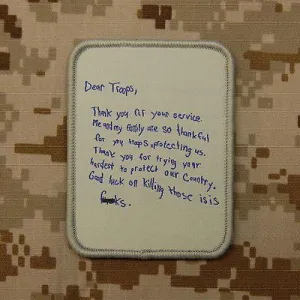 Dear Troops,
Thank you for your service.
Me and my family are so thankful
for you troops protecting us.
Thank you for trying your
hardest to protect our Country.
Good luck on killing those isis